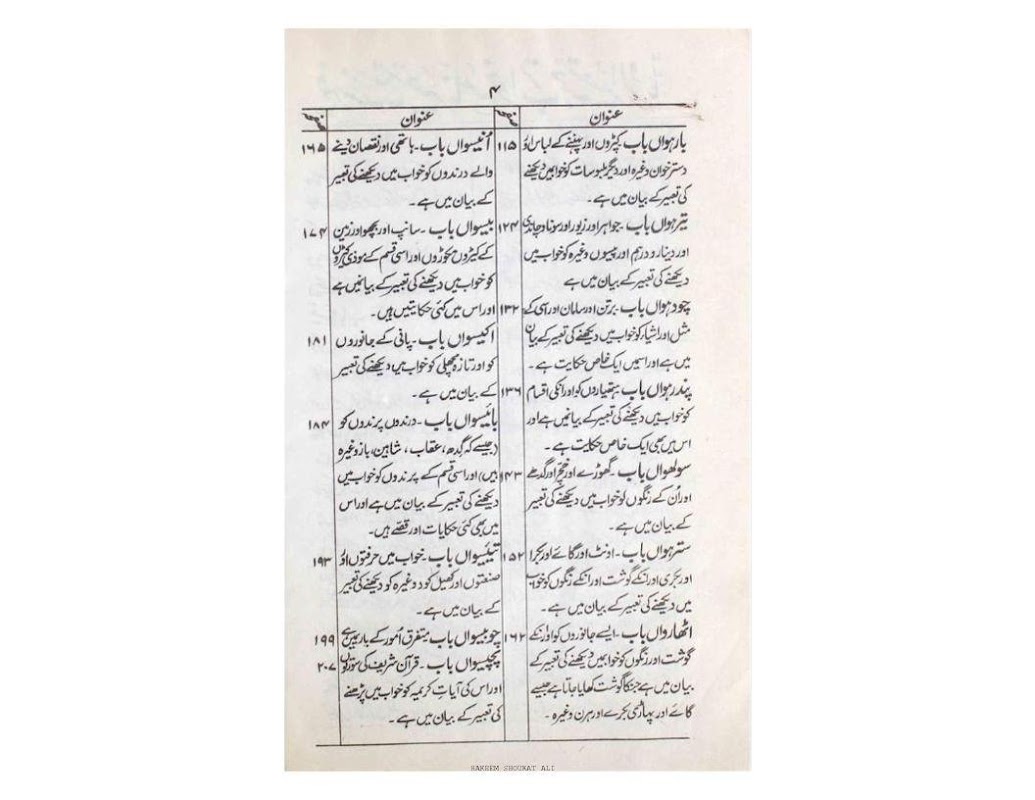 ۴
عنوان
نمبر صفحہ
بارہواں باب۔ کپڑوں اور پہننے کے لباس اور
۱۱۵
دسترخوان وغیرہ اور دیگر ملبوسات کو خوابمیں دیکھنے
کی تعبیر کے بیان میں ہے۔
تیرہواں باب۔ جواہر اور زیور اور سونا و چاندی
۱۲۴
اور دینار و درہم اور پیسوں وغیرہ کو خواب میں
دیکھنے کی تعبیر کے بیان میں ہے
چودہواں باب۔ برتن اور سامان اور اسی کے
۱۳۲
مثل اور اشیاء کو خواب میں دیکھنے کی تعبیر کے بیان
میں ہے اور اسمیں ایک خاص حکایت ہے۔
پندرہواں باب ہتھیاروں کو اور انکی اقسام
۱۳۶
کو خواب میں دیکھنے کی تعبیر کے بیانمیں ہے اور
اس میں بھی ایک خاص حکایت ہے۔
سولھواں باب۔ گھوڑے اور خچر اور گدھے
۱۴۳
اور اُن کے رنگوں کو خواب میں دیکھنے کی تعبیر
کے بیان میں ہے۔
سترہواں باب۔ اونٹ اور گائے اور بکرا
۱۵۲
اور بکری اور انکے گوشت اور انکے رنگوں کو خواب
میں دیکھنے کی تعبیر کے بیان میں ہے۔
اٹھارواں باب۔ ایسے جانوروں کو اور انکے
۱۶۲
گوشت اور رنگوں کو خوابمیں دیکھنے کی تعبیر کے
بیان میں ہے جنکا گوشت کھایا جاتا ہے جیسے
گائے اور پہاڑی بکرے اور ہرن وغیرہ۔
عنوان
نمبر صفحہ
اُنیسواں باب۔ ہاتھی اور نقصان دینے
۱۶۵
والے درندوں کو خواب میں دیکھنے کی تعبیر
کے بیان میں ہے۔
بیسواں باب۔ سانپ اور بچھو اور زمین
۱۷۴
کے کیڑوں مکوڑوں اور اسی قسم کے موذی کیڑوں
کو خواب میں دیکھنے کی تعبیر کے بیانمیں ہے
اور اس میں کئی حکایتیں ہیں۔
اکیسواں باب۔ پانی کے جانوروں
۱۸۱
کو اور تازہ مچھلی کو خواب میں دیکھنے کی تعبیر
کے بیان میں ہے۔
بائیسواں باب۔ درندوں پرندوں کو
۱۸۴
(جیسے کہ گدھ، عقاب، شاہین، باز وغیرہ
ہیں) اور اسی قسم کے پرندوں کو خواب میں
دیکھنے کی تعبیر کے بیان میں ہے اور اس
میں بھی کئی حکایات اور قصے ہیں۔
تیئیسواں باب۔ خواب میں حرفتوں اور
۱۹۳
صنعتوں اور کھیل کود وغیرہ کو دیکھنے کی تعبیر
کے بیان میں ہے۔
چوبیسواں باب متفرق اُمور کے بارمیں ہے
۱۹۹
پچیسواں باب۔ قرآن شریف کی سورتوں
۲۰۷
اور اس کی آیاتِ کریمہ کو خواب میں پڑھنے
کی تعبیر کے بیان میں ہے۔
HAKEEM SHOUKAT ALI